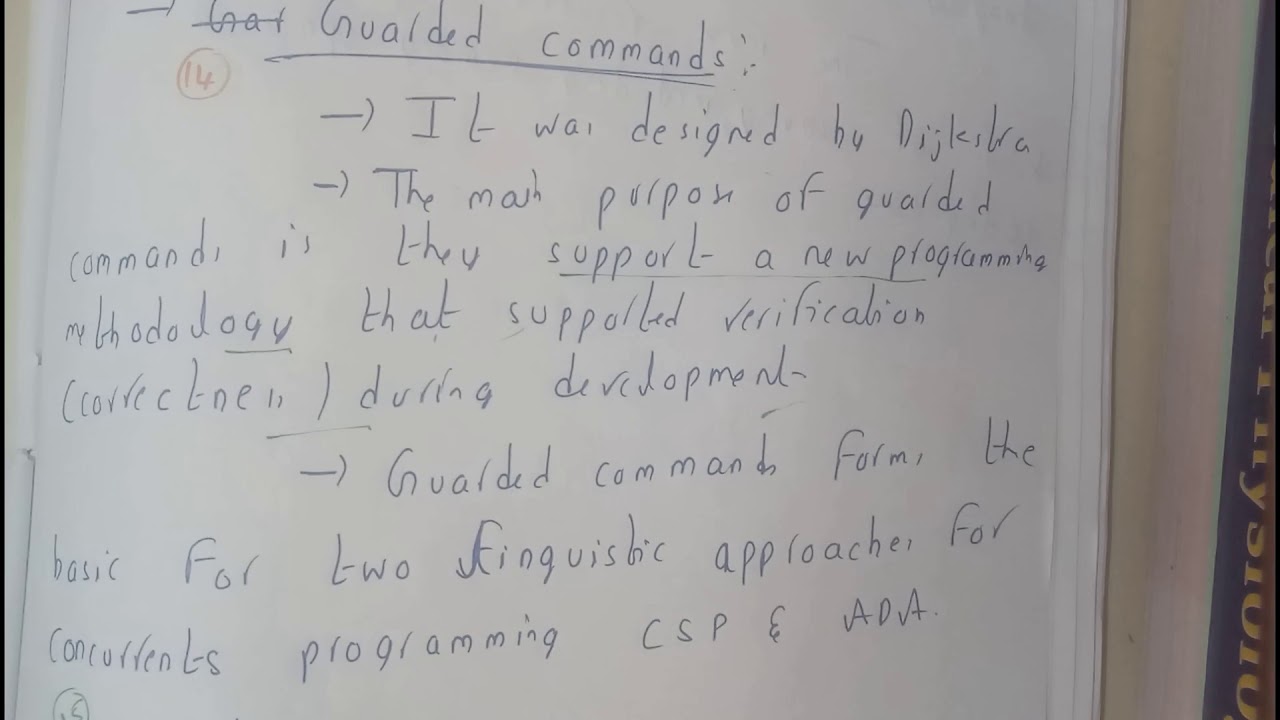 → Guarded commands:-
14
→ It was designed by Dijkstra
→ The main purpose of guarded
commands is they support a new programming
methodology that supported verification
(correctness) during development
→ Guarded commands forms the
basic for two linguistic approaches for
concurrents programming CSP & ADA.
15